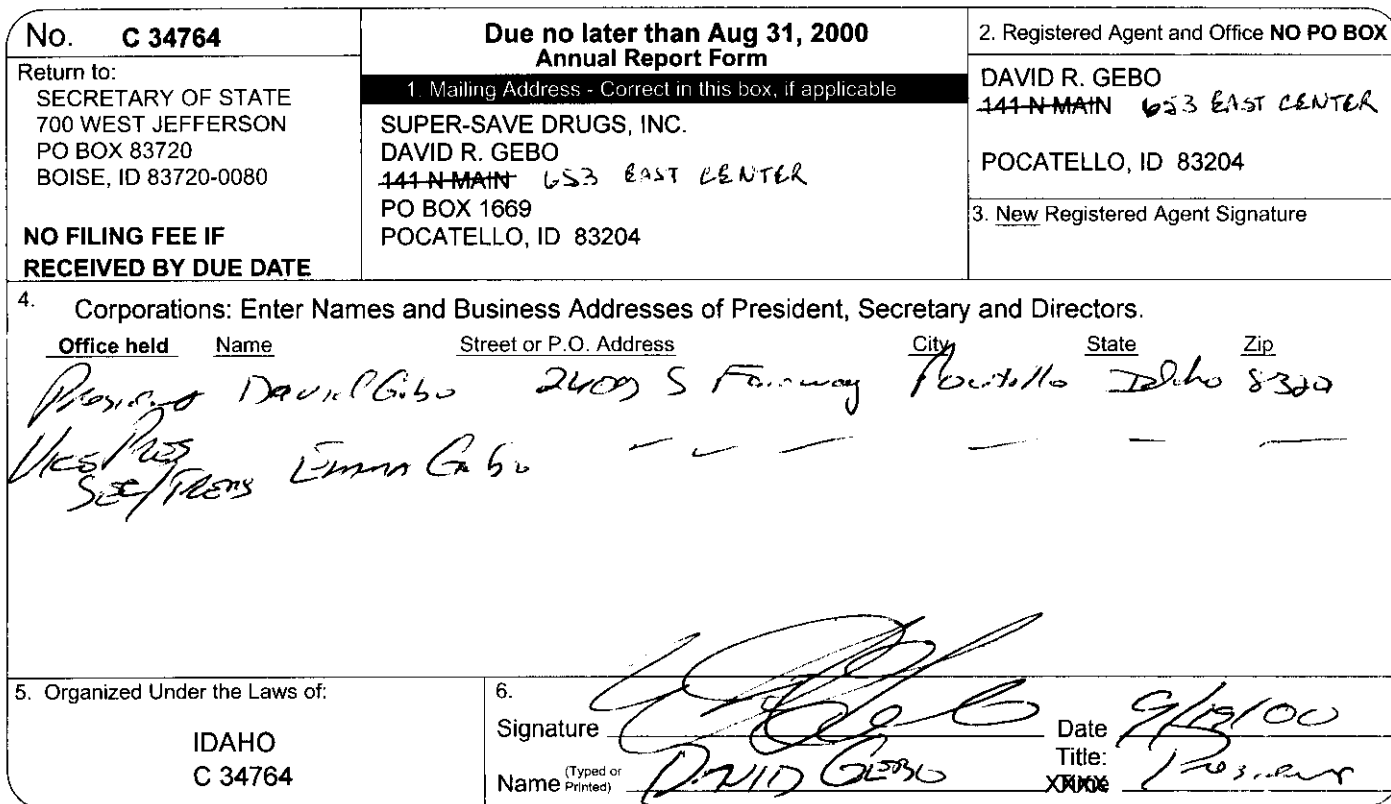 No. C 34764
Return to:
SECRETARY OF STATE
700 WEST JEFFERSON
PO BOX 83720
BOISE, ID 83720-0080
NO FILING FEE IF
RECEIVED BY DUE DATE
Due no later than Aug 31, 2000
Annual Report Form
1. Mailing Address - Correct in this box, if applicable
SUPER-SAVE DRUGS, INC.
DAVID R. GEBO
141 N MAIN 653 EAST CENTER
PO BOX 1669
POCATELLO, ID 83204
2. Registered Agent and Office NO PO BOX
DAVID R. GEBO
141 N MAIN 653 EAST CENTER
POCATELLO, ID 83204
3. New Registered Agent Signature
4. Corporations: Enter Names and Business Addresses of President, Secretary and Directors.
Office held Name Street or P.O. Address City State Zip
President David Gebo 2409 S Fairway Pocatello Idaho
Vice Pres
Sec/Treas Emma Gebo
5. Organized Under the Laws of:
IDAHO
C 34764
6.
Signature Date
Name (Typed or Printed) DAVID GEBO Title: President